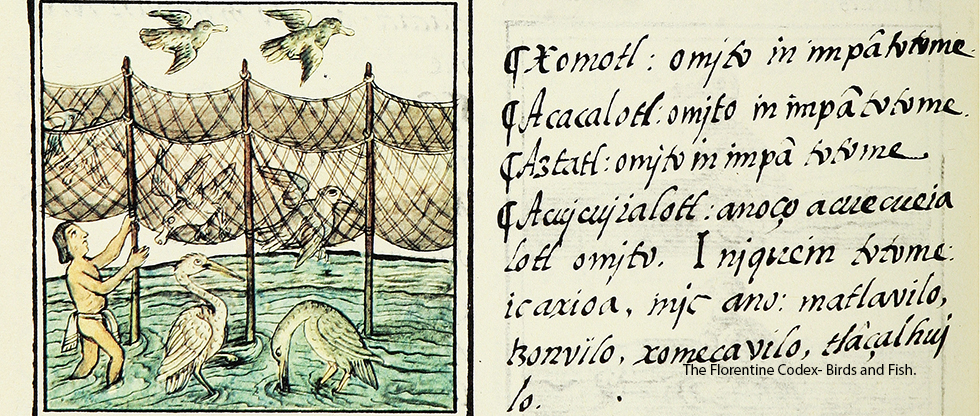 ¶Xomotl: omjto in impã totome.
¶Acacalotl: omjto in impã totome.
¶Aztatl: omjto in impã totome
¶Acujcujialotl: anoço acuecueia
lotl omjto. I njquein totome:
icaxioa, mjc ano: matlavilo,
tzonvilo, xomecavilo, tlâçalhuj
lo.
The Florentine Codex- Birds and Fish.